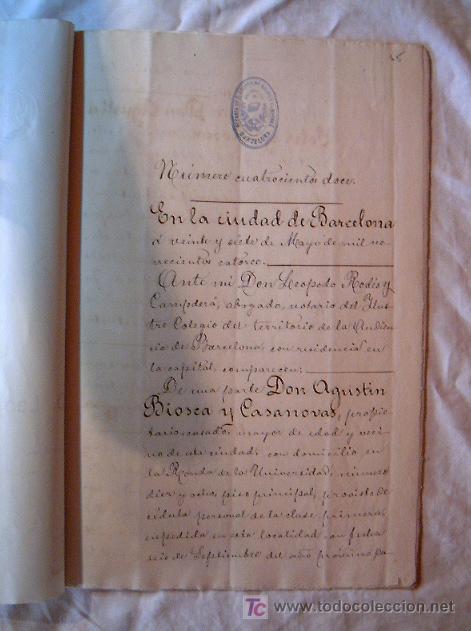 Número cuatrocientos doce.
En la ciudad de Barcelona
á veinte y siete de Mayo de mil no-
vecientos catorce.
Ante mí Don Leopoldo Rodés y
Campderá, abogado, notario del Ilus-
tre Colegio del territorio de la Audien-
cia de Barcelona, con residencia en
la capital, comparecen:
De una parte Don Agustin
Biosca y Casanovas, propie-
tario, casado, mayor de edad y veci-
no de esta ciudad, con domicilio en
la Ronda de la Universidad, número
diez y ocho, piso principal, provisto de
cédula personal de la clase primera,
expedida en esta localidad con fecha
seis de Septiembre del año próximo pa-
TC www.todocoleccion.net